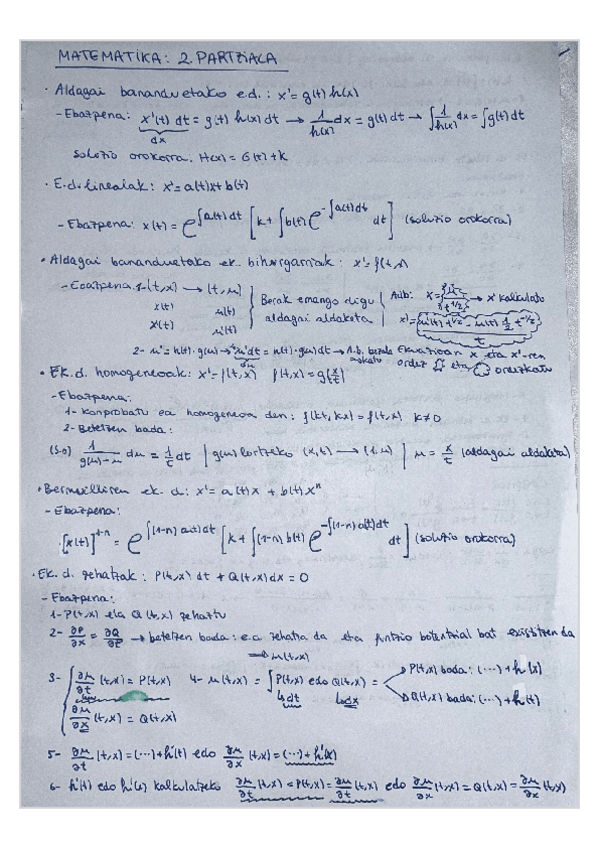 MATEMATIKA: 2. PARTZIALA
· Aldagai bananduetako e.d.: x' = g(t) h(x)
- Ebazpena: x'(t) dt = g(t) h(x) dt → 1/h(x) dx = g(t) dt → ∫ 1/h(x) dx = ∫ g(t) dt
dx
Soluzio orokorra. H(x) = G(t) + K
· E.d. linealak: x' = a(t)x + b(t)
- Ebazpena: x(t) = e^∫a(t)dt [K + ∫ b(t) e^-∫a(t)dt dt] (soluzio orokorra)
· Aldagai bananduetako ek. bihurgarriak: x' = f(t,x)
- Ebazpena. 1- (t,x) → (t,u) Berak emango digu Adb: x = u/t^1/2 → x' kalkulatu
x(t) u(t) aldagai aldaketa
x'(t) u'(t) x' = u'(t) t^1/2 - u(t) 1/2 t^-1/2 / t
2- u' = h(t)·g(u) → u'dt = h(t)·g(u)dt → A.b. bezala Ekuazioan x eta x'-ren
du ordez eta ordezkatu
· Ek. d. homogeneoak: x' = f(t,x) f(t,x) = g(x/t)
- Ebazpena:
1- Konprobatu ea homogeneoa den: f(kt, kx) = f(t,x) k≠0
2- Betetzen bada:
(S.O) 1/g(u)-u du = 1/t dt | g(u) lortzeko (x,t) → (1,u) | u = x/t (aldagai aldaketa)
· Bernuilliren ek. d: x' = a(t)x + b(t)x^n
- Ebazpena:
[x(t)]^1-n = e^∫(1-n)a(t)dt [K + ∫(1-n) b(t) e^-∫(1-n)a(t)dt dt] (soluzio orokorra)
· Ek. d. zehatzak: P(t,x) dt + Q(t,x) dx = 0
- Ebazpena:
1- P(t,x) eta Q(t,x) zehaztu
2- ∂P/∂x = ∂Q/∂t → betetzen bada: e.a zehatza da eta funtzio potentzial bat existitzen da
⇒ u(t,x)
3- { ∂u/∂t (t,x) = P(t,x) 4- u(t,x) = ∫ P(t,x) edo Q(t,x) = P(t,x) bada: (...) + h(x)
↳dt ↳dx Q(t,x) bada: (...) + h(t)
∂u/∂x (t,x) = Q(t,x)
5- ∂u/∂t (t,x) = (...) + h'(t) edo ∂u/∂x (t,x) = (...) + h'(x)
6- h'(t) edo h'(x) kalkulatzeko ∂u/∂t (t,x) = P(t,x) = ∂u/∂t (t,x) edo ∂u/∂x (t,x) = Q(t,x) = ∂u/∂x (t,x)